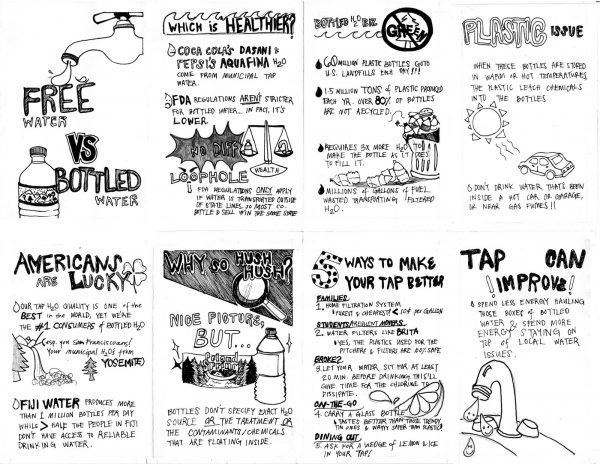 FREE
WATER
VS
BOTTLED
WATER
WHICH IS HEALTHIER?
COCA COLA'S DASANI &
PEPSI'S AQUAFINA H2O
COME FROM MUNICIPAL TAP
WATER.
FDA REGULATIONS AREN'T STRICTER
FOR BOTTLED WATER... IN FACT, IT'S
LOWER.
NO DIFF
HEALTH
LOOPHOLE
FDA REGULATIONS ONLY APPLY
IF WATER IS TRANSPORTED OUTSIDE
OF STATE LINES, SO MOST CO.
BOTTLE & SELL W/IN THE SAME STATE
BOTTLED H2O BIZ
GREEN
60 MILLION PLASTIC BOTTLES GO TO
U.S. LANDFILLS EACH DAY!!!
1.5 MILLION TONS OF PLASTIC PRODUCED
EACH YR. OVER 80% OF BOTTLES
ARE NOT RECYCLED.
REQUIRES 3X MORE H2O TO
MAKE THE BOTTLE AS IT DOES
TO FILL IT.
MILLIONS OF GALLONS OF FUEL
WASTED TRANSPORTING FILTERED
H2O.
PLASTIC ISSUE
WHEN THESE BOTTLES ARE STORED
IN WARM OR HOT TEMPERATURES
THE PLASTIC LEACH CHEMICALS
INTO THE BOTTLES.
DON'T DRINK WATER THAT'S BEEN
INSIDE A HOT CAR OR GARAGE,
OR NEAR GAS FUMES!!
AMERICANS
ARE LUCKY
OUR TAP H2O QUALITY IS ONE OF THE
BEST IN THE WORLD, YET WE'RE
THE #1 CONSUMERS OF BOTTLED H2O
(esp. you San Franciscans!
Your municipal H2Os from
YOSEMITE)
FIJI WATER PRODUCES MORE
THAN 1 MILLION BOTTLES PER DAY
WHILE > HALF THE PEOPLE IN FIJI
DON'T HAVE ACCESS TO RELIABLE
DRINKING WATER.
WHY SO HUSH
HUSH?
NICE PICTURE,
BUT...
BOTTLES DON'T SPECIFY EXACT H2O
SOURCE OR THE TREATMENT OR
THE CONTAMINANTS/CHEMICALS
THAT ARE FLOATING INSIDE.
5 WAYS TO MAKE
YOUR TAP BETTER
FAMILIES
1. HOME FILTRATION SYSTEM
PUREST & CHEAPEST! < 10¢ per Gallon
STUDENTS/FREQUENT MOVERS
2. WATER FILTERS LIKE BRITA
YES, THE PLASTICS USED FOR THE
PITCHERS & FILTERS ARE SAFE
BROKE?
3. LET YOUR WATER SIT FOR AT LEAST
20 MIN. BEFORE DRINKING. THIS'LL
GIVE TIME FOR THE CHLORINE TO
DISSIPATE.
ON-THE-GO
4. CARRY A GLASS BOTTLE
TASTES BETTER THAN THOSE TRENDY
TIN ONES & WAY SAFER THAN PLASTIC!
DINING OUT
5. ASK FOR A WEDGE OF LEMON & ICE
IN YOUR TAP!
TAP CAN
IMPROVE!
SPEND LESS ENERGY HAULING
THOSE BOXES OF BOTTLED
WATER & SPEND MORE
ENERGY STAYING ON
TOP OF LOCAL WATER
ISSUES.